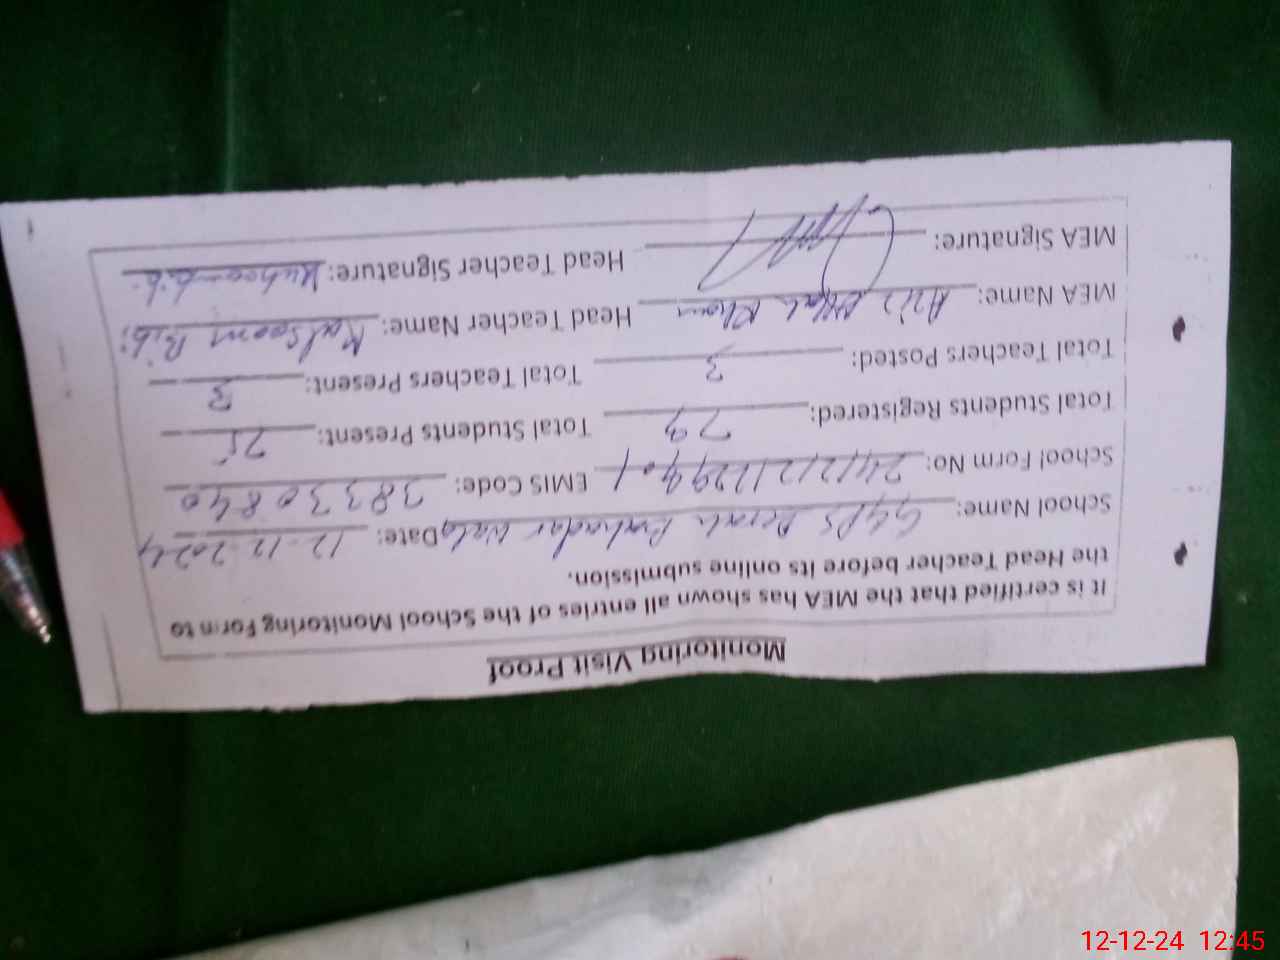 Monitoring Visit Proof
It is certified that the MEA has shown all entries of the School Monitoring Form to
the Head Teacher before its online submission.
School Name: GGPS Derah Bahadar Wala Date: 12-12-2024
School Form No: EMIS Code: 38330840
Total Students Registered: 79 Total Students Present: 75
Total Teachers Posted: 3 Total Teachers Present: 3
MEA Name: Khan Head Teacher Name: Kalsoom Bibi
MEA Signature: Head Teacher Signature:
12-12-24 12:45